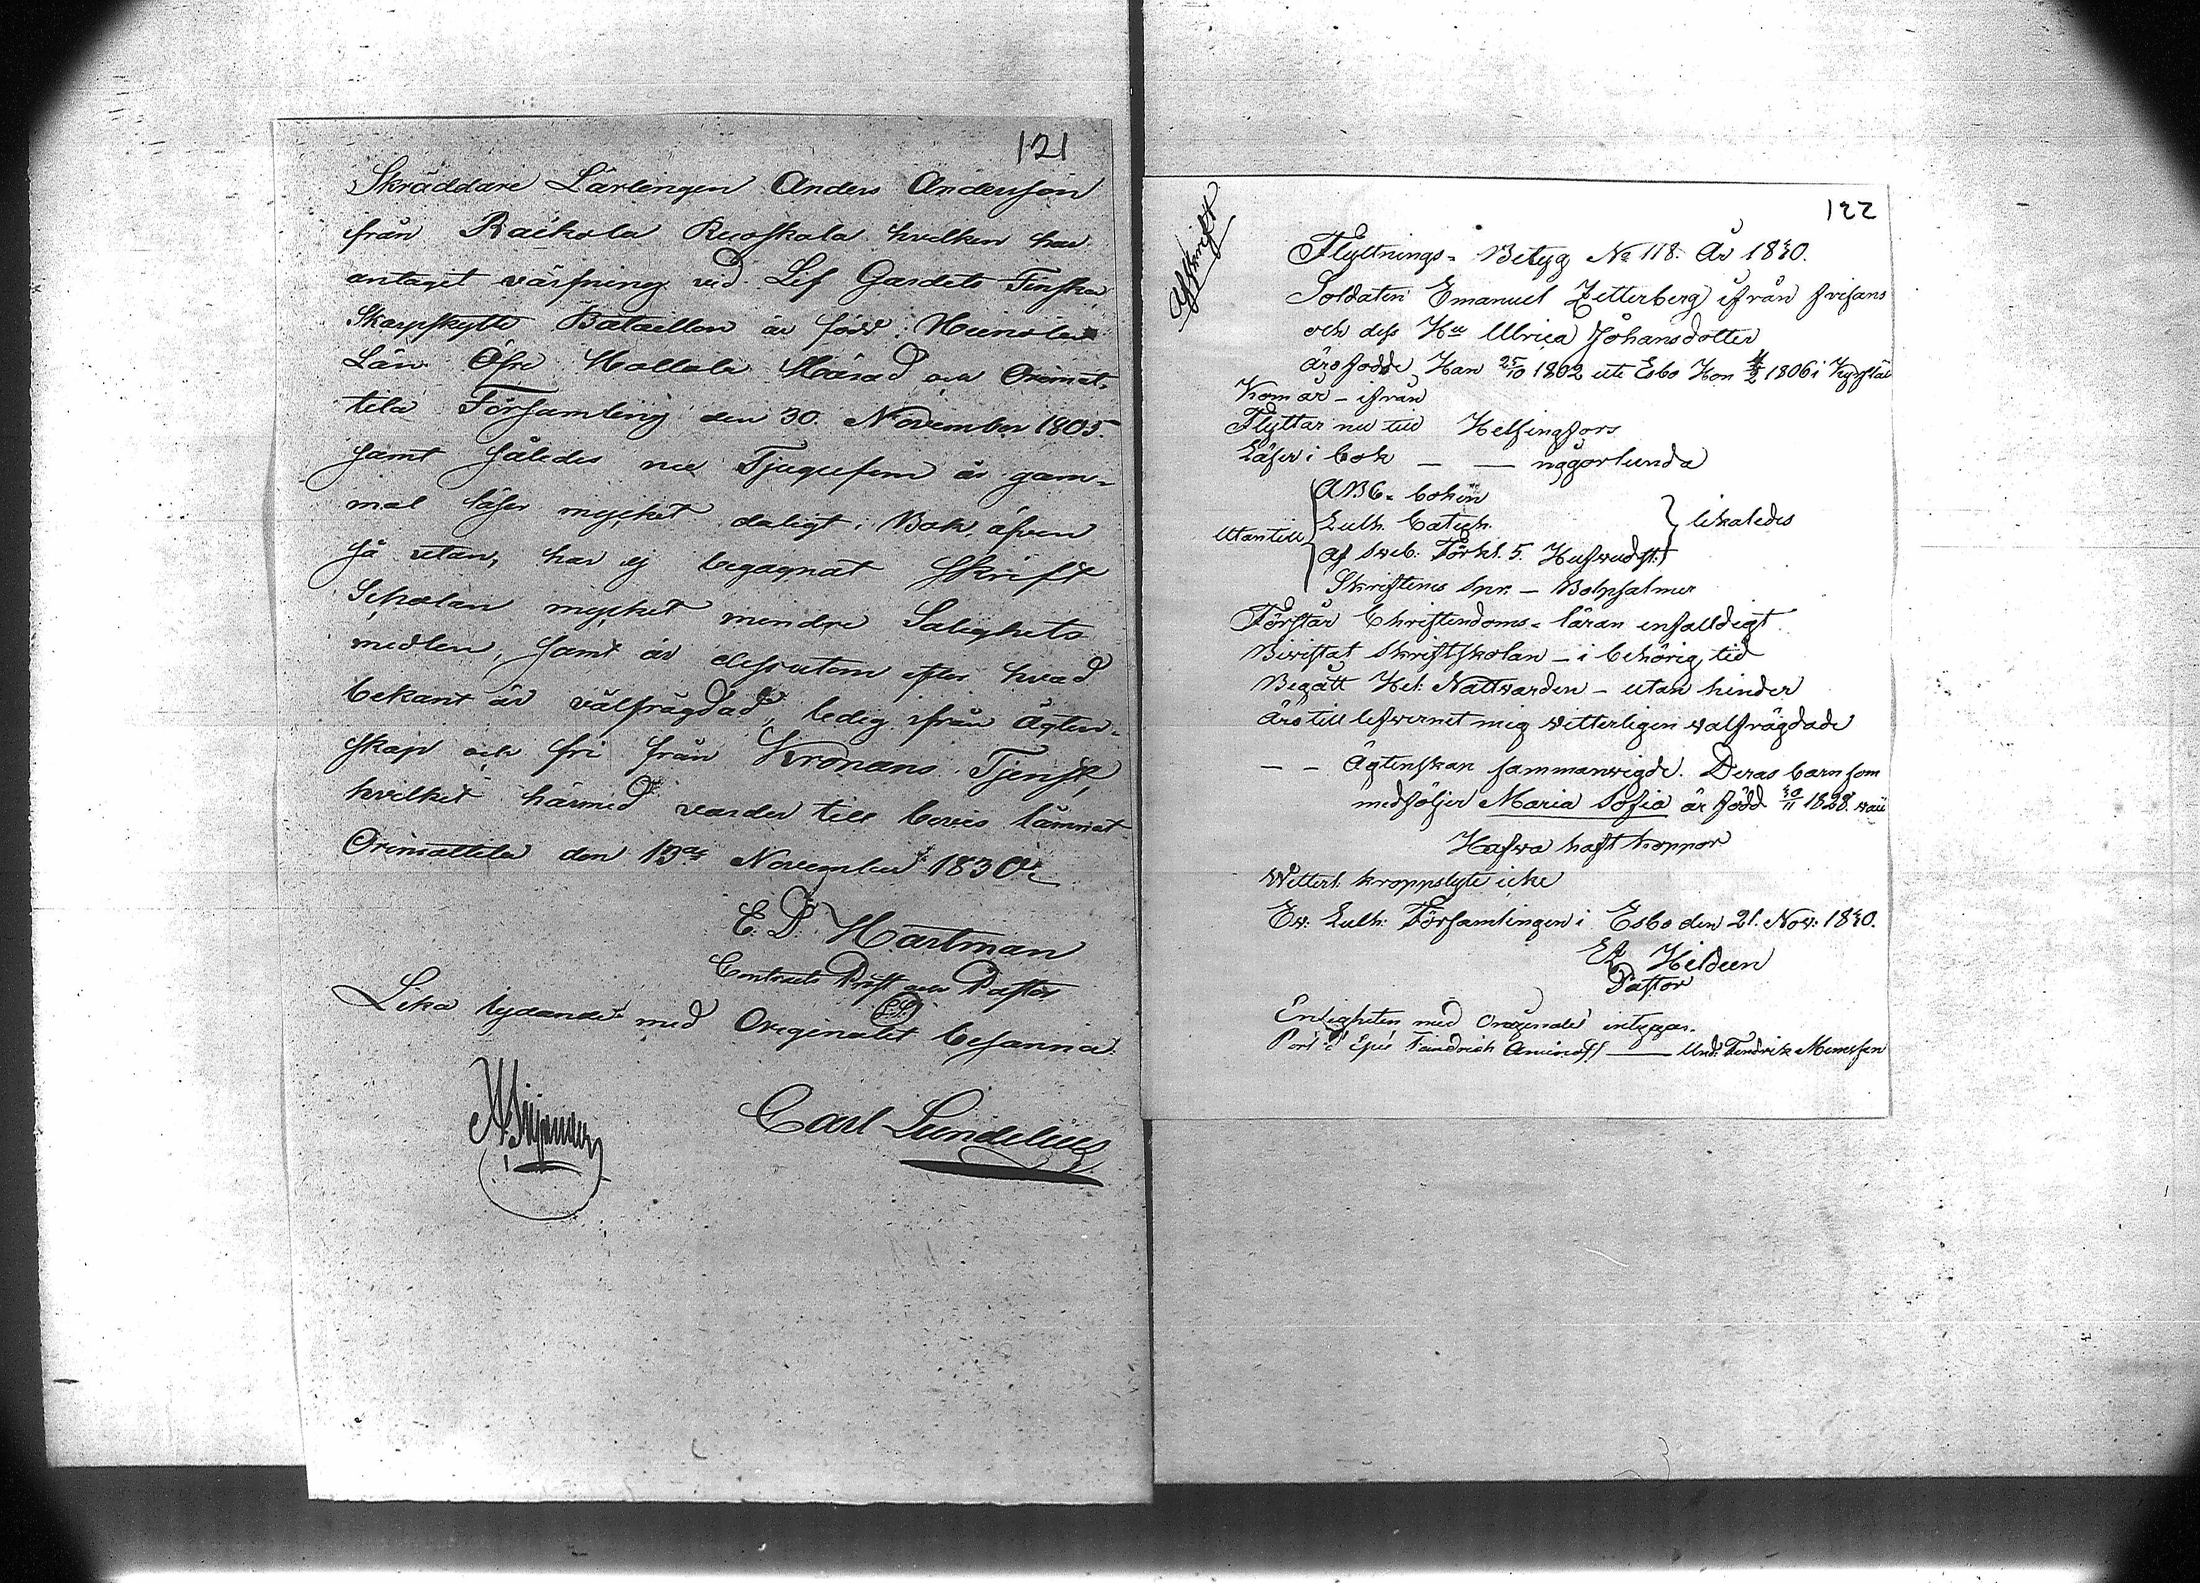 121
Skräddare Lärlingen Anders Andersson
från Raikola Ruoskola hvilken har
antaget värfning vid Lif Gardets Finska
Skarpskytte Bataillon är född i Heinola
Län Öfre Hollola Härad och Orimat-
tila Församling den 30. November 1805.
samt således nu Tjugufem år gam-
mal läser mycket daligt i Bok, äfven
så utan, har ej begagnat Skrift
Scholan mycket mindre Salighets
medlen, samt är dessutom efter hvad
bekant är välfrägdad, ledig ifrån Ägten-
skap och fri från Kronans Tjenst,
hvilket härmed varder till bevis lämnat
Orimattila den 19de November 1830.
E. D. Hartman
Contracts Prost och Pastor
Lika lydande med Originalet besanna:
Carl Lundelius
122
Afskrift
Flyttnings- Betyg No 118. År 1830.
Soldaten Emanuel Zetterberg ifrån
och dess Hu Ulrica Johansdotter
äro födde, Han 25/10 1802 uti Esbo Hon 1806 i Kyrkslät
Kom år – ifrån
Flyttar nu till Helsingfors
Läser i bok – — någorlunda
Utantill
ABC- boken
Luth. Catech.
af Sveb. Förkl. 5. Hufvudst.
likaledes
Skriftenes spr. – Botpsalmer
Förstår Christendoms- läran enfalldigt
Bevistat Skriftskolan – i behörig tid
Begått Hel. Nattvarden – utan hinder
äro till lefvernet mig vitterligen valfrägdade
– – Ägtenskap sammanvigde. Deras barn som
medföljer Maria Sofia är född 30/11 1828.
Hafva haft koppor
Vitterl. kroppslyte icke
Ev. Luth. Församlingen i Esbo den 21. Nov: 1830.
Hildeen
Pastor
Enligheten med Originalet intygar.
Port d' Epée Fändrich Aminoff ——